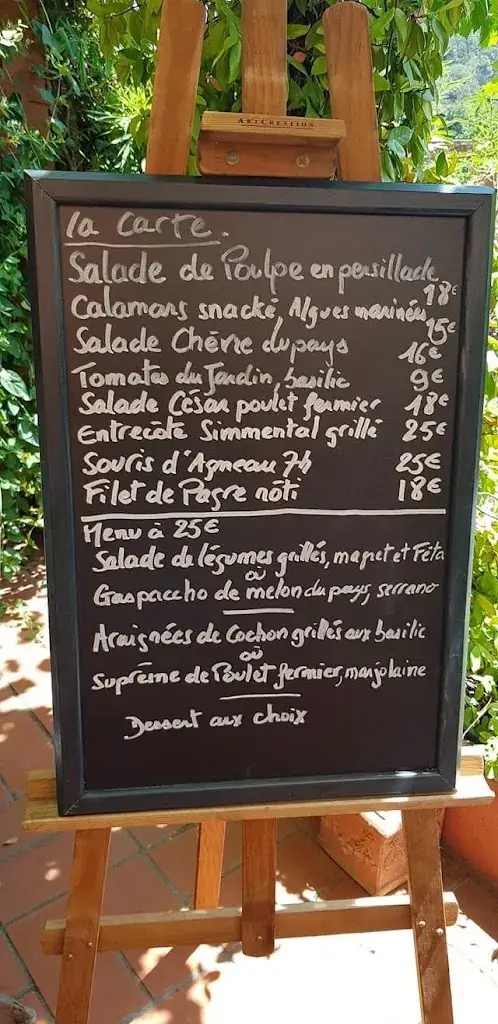 ARTCREATION
la Carte.
Salade de Poulpe en persillade 18€
Calamars snacké, Algues marinées 15€
Salade Chèvre du pays 16€
Tomates du Jardin, basilic 9€
Salade César poulet fermier 18€
Entrecôte Simmental grillé 25€
Souris d'Agneau 7h 25€
Filet de Pagre rôti 18€
Menu à 25€
Salade de légumes grillés, magret et Féta
où
Gaspaccho de melon du pays, serrano
Araignées de Cochon grillés aux basilic
où
Suprême de Poulet fermier, marjolaine
Dessert aux choix